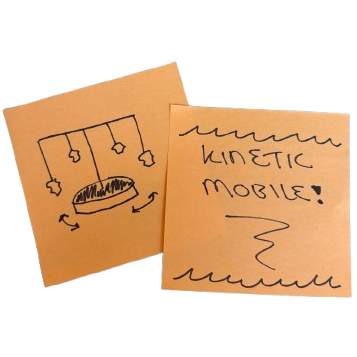 KINETIC
MOBILE!